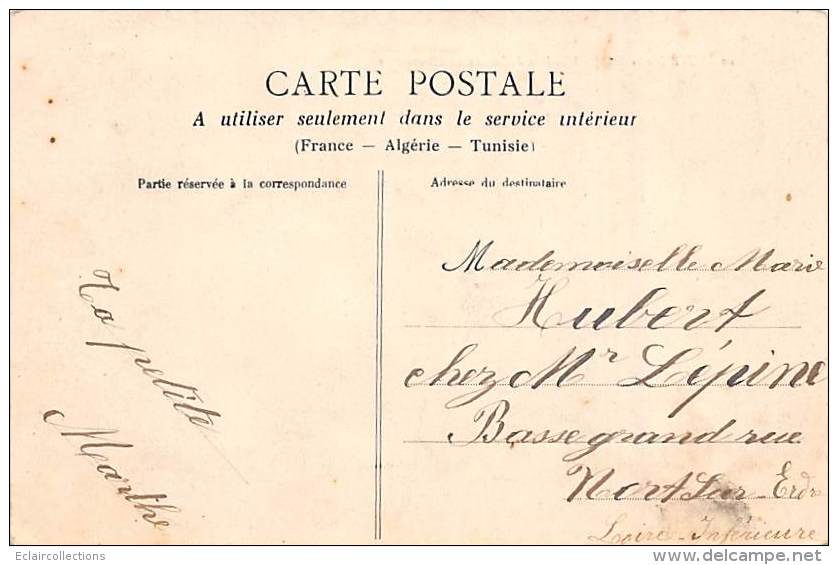 CARTE POSTALE
A utiliser seulement dans le service intérieur
(France — Algérie — Tunisie)
Partie réservée à la correspondance
Adresse du destinataire
Ta petite
Marthe
Mademoiselle Marie
Hubert
chez Mr Lépine
Basse grand rue
Nort sur Erdre
Loire-Inférieure
Eclaircollections
www.delcampe.net